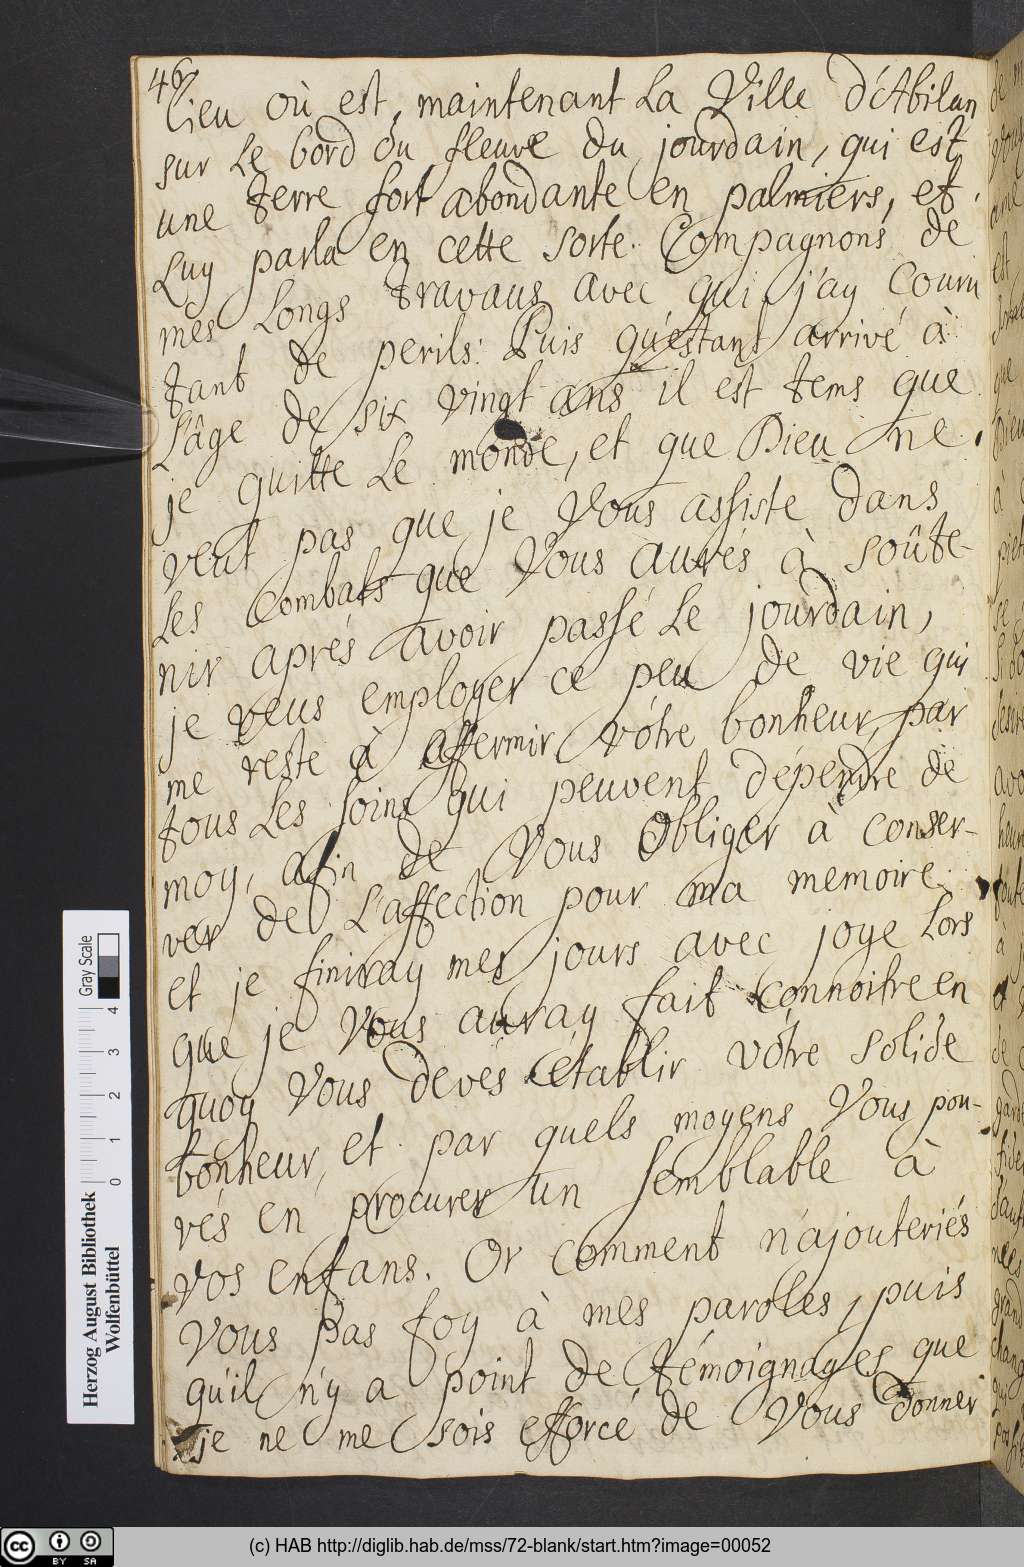 46
lieu où est maintenant La Ville d'Abilan
sur Le bord du fleuve du jourdain, qui est
une terre fort abondante en palmiers, et
Luy parla en cette sorte. Compagnons de
mes Longs travaus avec qui j'ay Couru
tant de perils: Puis qu'estant arrivé à
L'âge de six vingt ans il est tems que
je quitte Le monde, et que Dieu ne
veut pas que je Vous assiste dans
Les Combats que Vous aurés à soûte-
nir aprés avoir passé Le jourdain,
je veus employer ce peu de vie qui
me reste à affermir vôtre bonheur, par
tous Les soins qui peuvent dépendre de
moy, afin de Vous Obliger à conser-
ver de L'affection pour ma memoire.
et je finiray mes jours avec joye Lors
que je Vous auray fait connoitre en
quoy Vous devés établir vôtre solide
bonheur, et par quels moyens Vous pou-
vés en procurer un semblable à
vos enfans. Or comment n'ajouteriés
Vous pas foy à mes paroles, puis
qu'il n'y a point de témoignages que
je ne me sois efforcé de Vous donner
Herzog August Bibliothek
Wolfenbüttel
Gray Scale
0 1 2 3 4
cc BY SA
(c) HAB http://diglib.hab.de/mss/72-blank/start.htm?image=00052